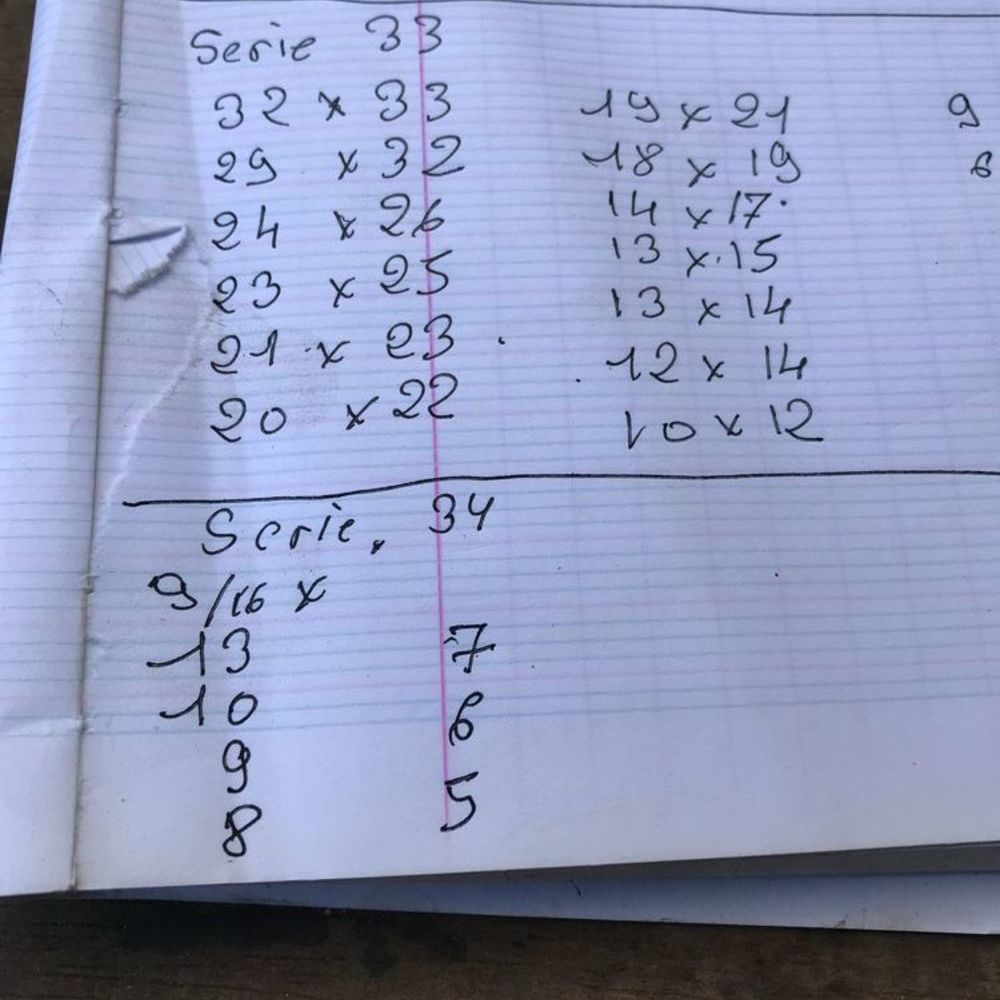 Serie 33
32 x 33 19 x 21 9
29 x 32 18 x 19 6
24 x 26 14 x 17
23 x 25 13 x 15
21 x 23 13 x 14
20 x 22 12 x 14
10 x 12
Serie. 34
9/16 x
13 7
10 6
9 5
8